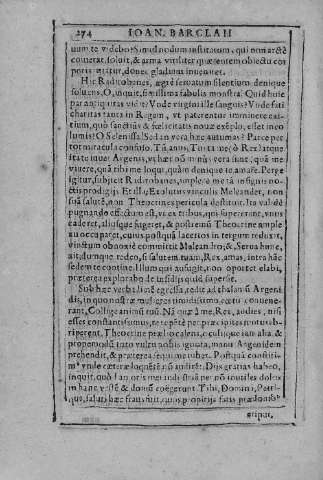 274 IOAN. BARCLAII
uum te videbo? Simul nodum institarum, qui non arctè
coierat, soluit, & arma viriliter quærentem obiectu cor
poris moratur, donec gladium inuenit.
Hic Radirobanes, ægrè seruatum silentium denique
soluens, O, inquit, fœdissima fabulis monstra! Quid huic
par antiquitas vidit? Vnde virgini ille sanguis? Vnde
charitas tanta in Regem, vt pateretur imminere exi-
tium, quò sanctius & felicitatis nouæ exemplo, esset inco
lumis? O Selenissa! Sed an vera hæc autumas? Parce pec
tot miracula confuso. Tu, anus, Tu ita me, ô Rex
itate iuuet Argenis, vt hæc non minùs vera sunt, quàm me
viuere, quàm tibi me loqui, quàm denique te amare. Per
igitur, subiecit Radirobanes, imple me tam insignis no-
ctis prodigijs. Et illa, Euolutus vinculis Meleander, non
suâ salutè, non Theocrines pericula destituit. Ita validè
pugnando effectum est, vt ex tribus, qui supererant, vnus
caderet, aliusque fugeret, & postremus Theocrine ample
xu occuparet, cuius postquã lacertos in tergum reduxit,
vinctum obnoxiè committit Meleandro; & Serua hunc,
ait, dumque redeo, si salutem tuam, Rex, amas, intra hanc
sedem te contine. Illum qui aufugit, non oportet elabi,
præterea explorabo de insidijs quid supersit.
Sub hæc verba limê egressa, redit ad thalamũ Argeni
dis, in quo nostræ mulieres timidissimo cœtu conuene-
rant. Collige animũ tuũ. Na quæ à me, Rex, audies, nisi
esses constantissimus, te repentè per præcipitia motus ab-
riperent. Theocrine per loca lera, oculisque iam alba, &
propemodũ toto vultu nobis ignota, manũ Argenidem
prehendit, & præterea sequi me iubet. Postquã constiti-
mus vnde cæteræ loquentê nõ audirêt: Dijs gratias habeo,
inquit, quòd lanoris meandi studia per nõ inutiles dolos
in hanc vestê & domũ coëgerunt. Tibi, Domina, Patri-
que, salus hæc fraus fuit, quos proprijs satis prædonibus
eripui,